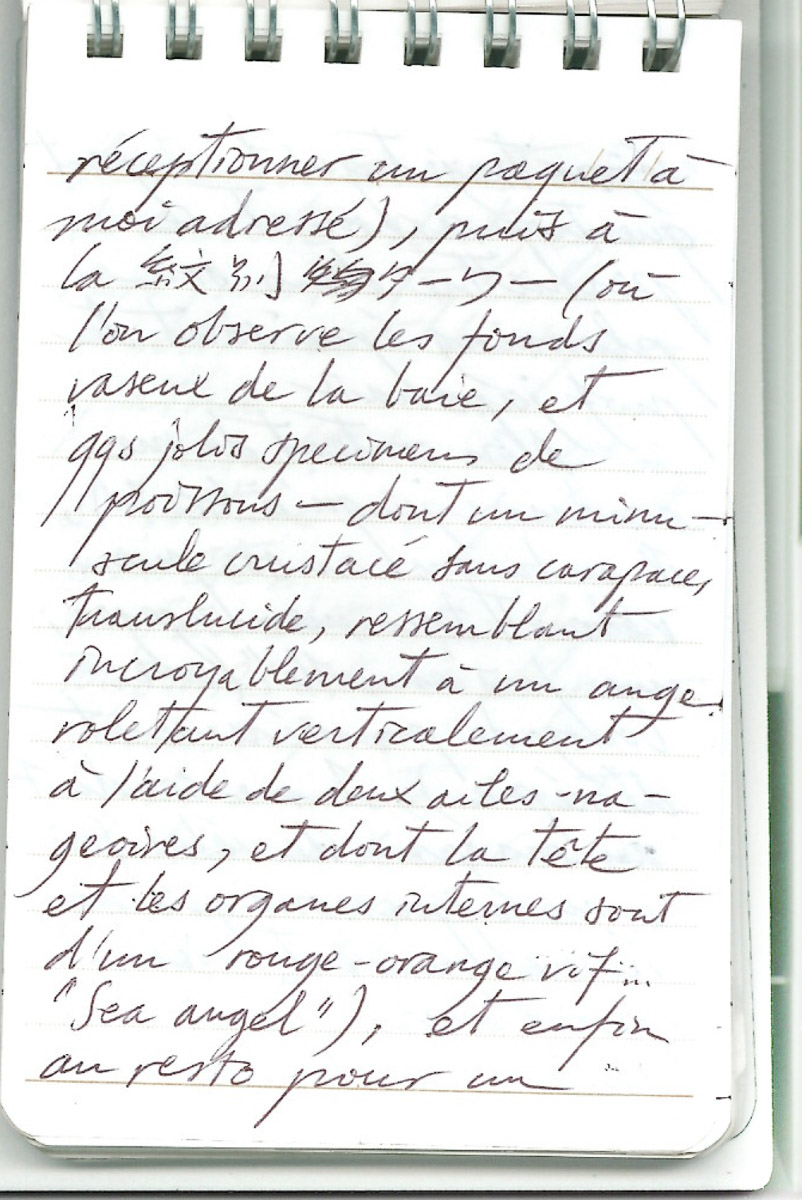 réceptionner un paquet à
moi adressé), puis à
la 紋別タワー (où
l'on observe les fonds
vaseux de la baie, et
qqs jolis specimens de
poissons — dont un minu-
scule crustacé sans carapace,
translucide, ressemblant
incroyablement à un ange
voletant verticalement
à l'aide de deux ailes-na-
geoires, et dont la tête
et les organes internes sont
d'un rouge-orange vif...
"Sea angel"), et enfin
au resto pour un